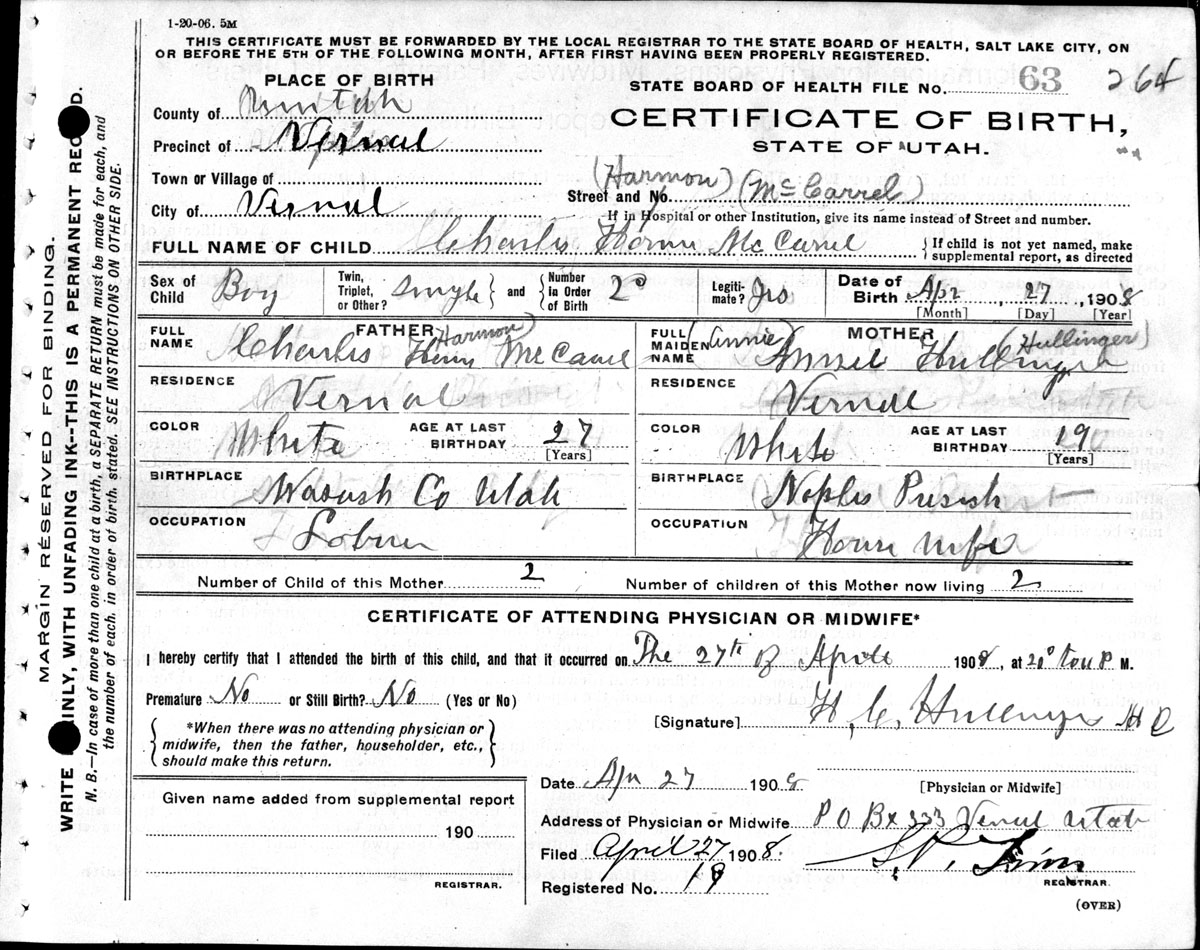 1-20-06. 5M
THIS CERTIFICATE MUST BE FORWARDED BY THE LOCAL REGISTRAR TO THE STATE BOARD OF HEALTH, SALT LAKE CITY, ON
OR BEFORE THE 5TH OF THE FOLLOWING MONTH, AFTER FIRST HAVING BEEN PROPERLY REGISTERED.
PLACE OF BIRTH
STATE BOARD OF HEALTH FILE No. 63 264
County of Uintah
CERTIFICATE OF BIRTH,
Precinct of Vernal
STATE OF UTAH.
Town or Village of
(Harmon) (McCarrel)
Street and No.
City of Vernal
If in Hospital or other Institution, give its name instead of Street and number.
FULL NAME OF CHILD Charles McCarrel
{If child is not yet named, make supplemental report, as directed
Sex of Child Boy
Twin, Triplet, or Other? Single } and { Number in Order of Birth 2
Legitimate? Yes
Date of Birth Apr, 27, 1908
[Month] [Day] [Year]
FATHER
FULL NAME Charles (Harmon) McCarrel
MOTHER
FULL MAIDEN NAME (Annie) Annie Hullinger (Hullinger)
RESIDENCE Vernal
RESIDENCE Vernal
COLOR White
AGE AT LAST BIRTHDAY 27
[Years]
COLOR White
AGE AT LAST BIRTHDAY 19
[Years]
BIRTHPLACE Wasash Co Utah
BIRTHPLACE Naples
OCCUPATION Laborer
OCCUPATION House wife
Number of Child of this Mother 2
Number of children of this Mother now living 2
CERTIFICATE OF ATTENDING PHYSICIAN OR MIDWIFE*
I hereby certify that I attended the birth of this child, and that it occurred on The 27th of April 1908, at P. M.
Premature No or Still Birth? No (Yes or No)
[Signature] H. C. Hullinger M D
{*When there was no attending physician or midwife, then the father, householder, etc., should make this return.}
Date Apr 27 1908
[Physician or Midwife]
Given name added from supplemental report
190
REGISTRAR.
Address of Physician or Midwife P O Bx 333 Vernal Utah
Filed April 27 1908.
REGISTRAR.
Registered No. 19
(OVER)
MARGIN RESERVED FOR BINDING.
WRITE INLY, WITH UNFADING INK--THIS IS A PERMANENT RECO D.
N. B.—In case of more than one child at a birth, a SEPARATE RETURN must be made for each, and
the number of each, in order of birth, stated. SEE INSTRUCTIONS ON OTHER SIDE.